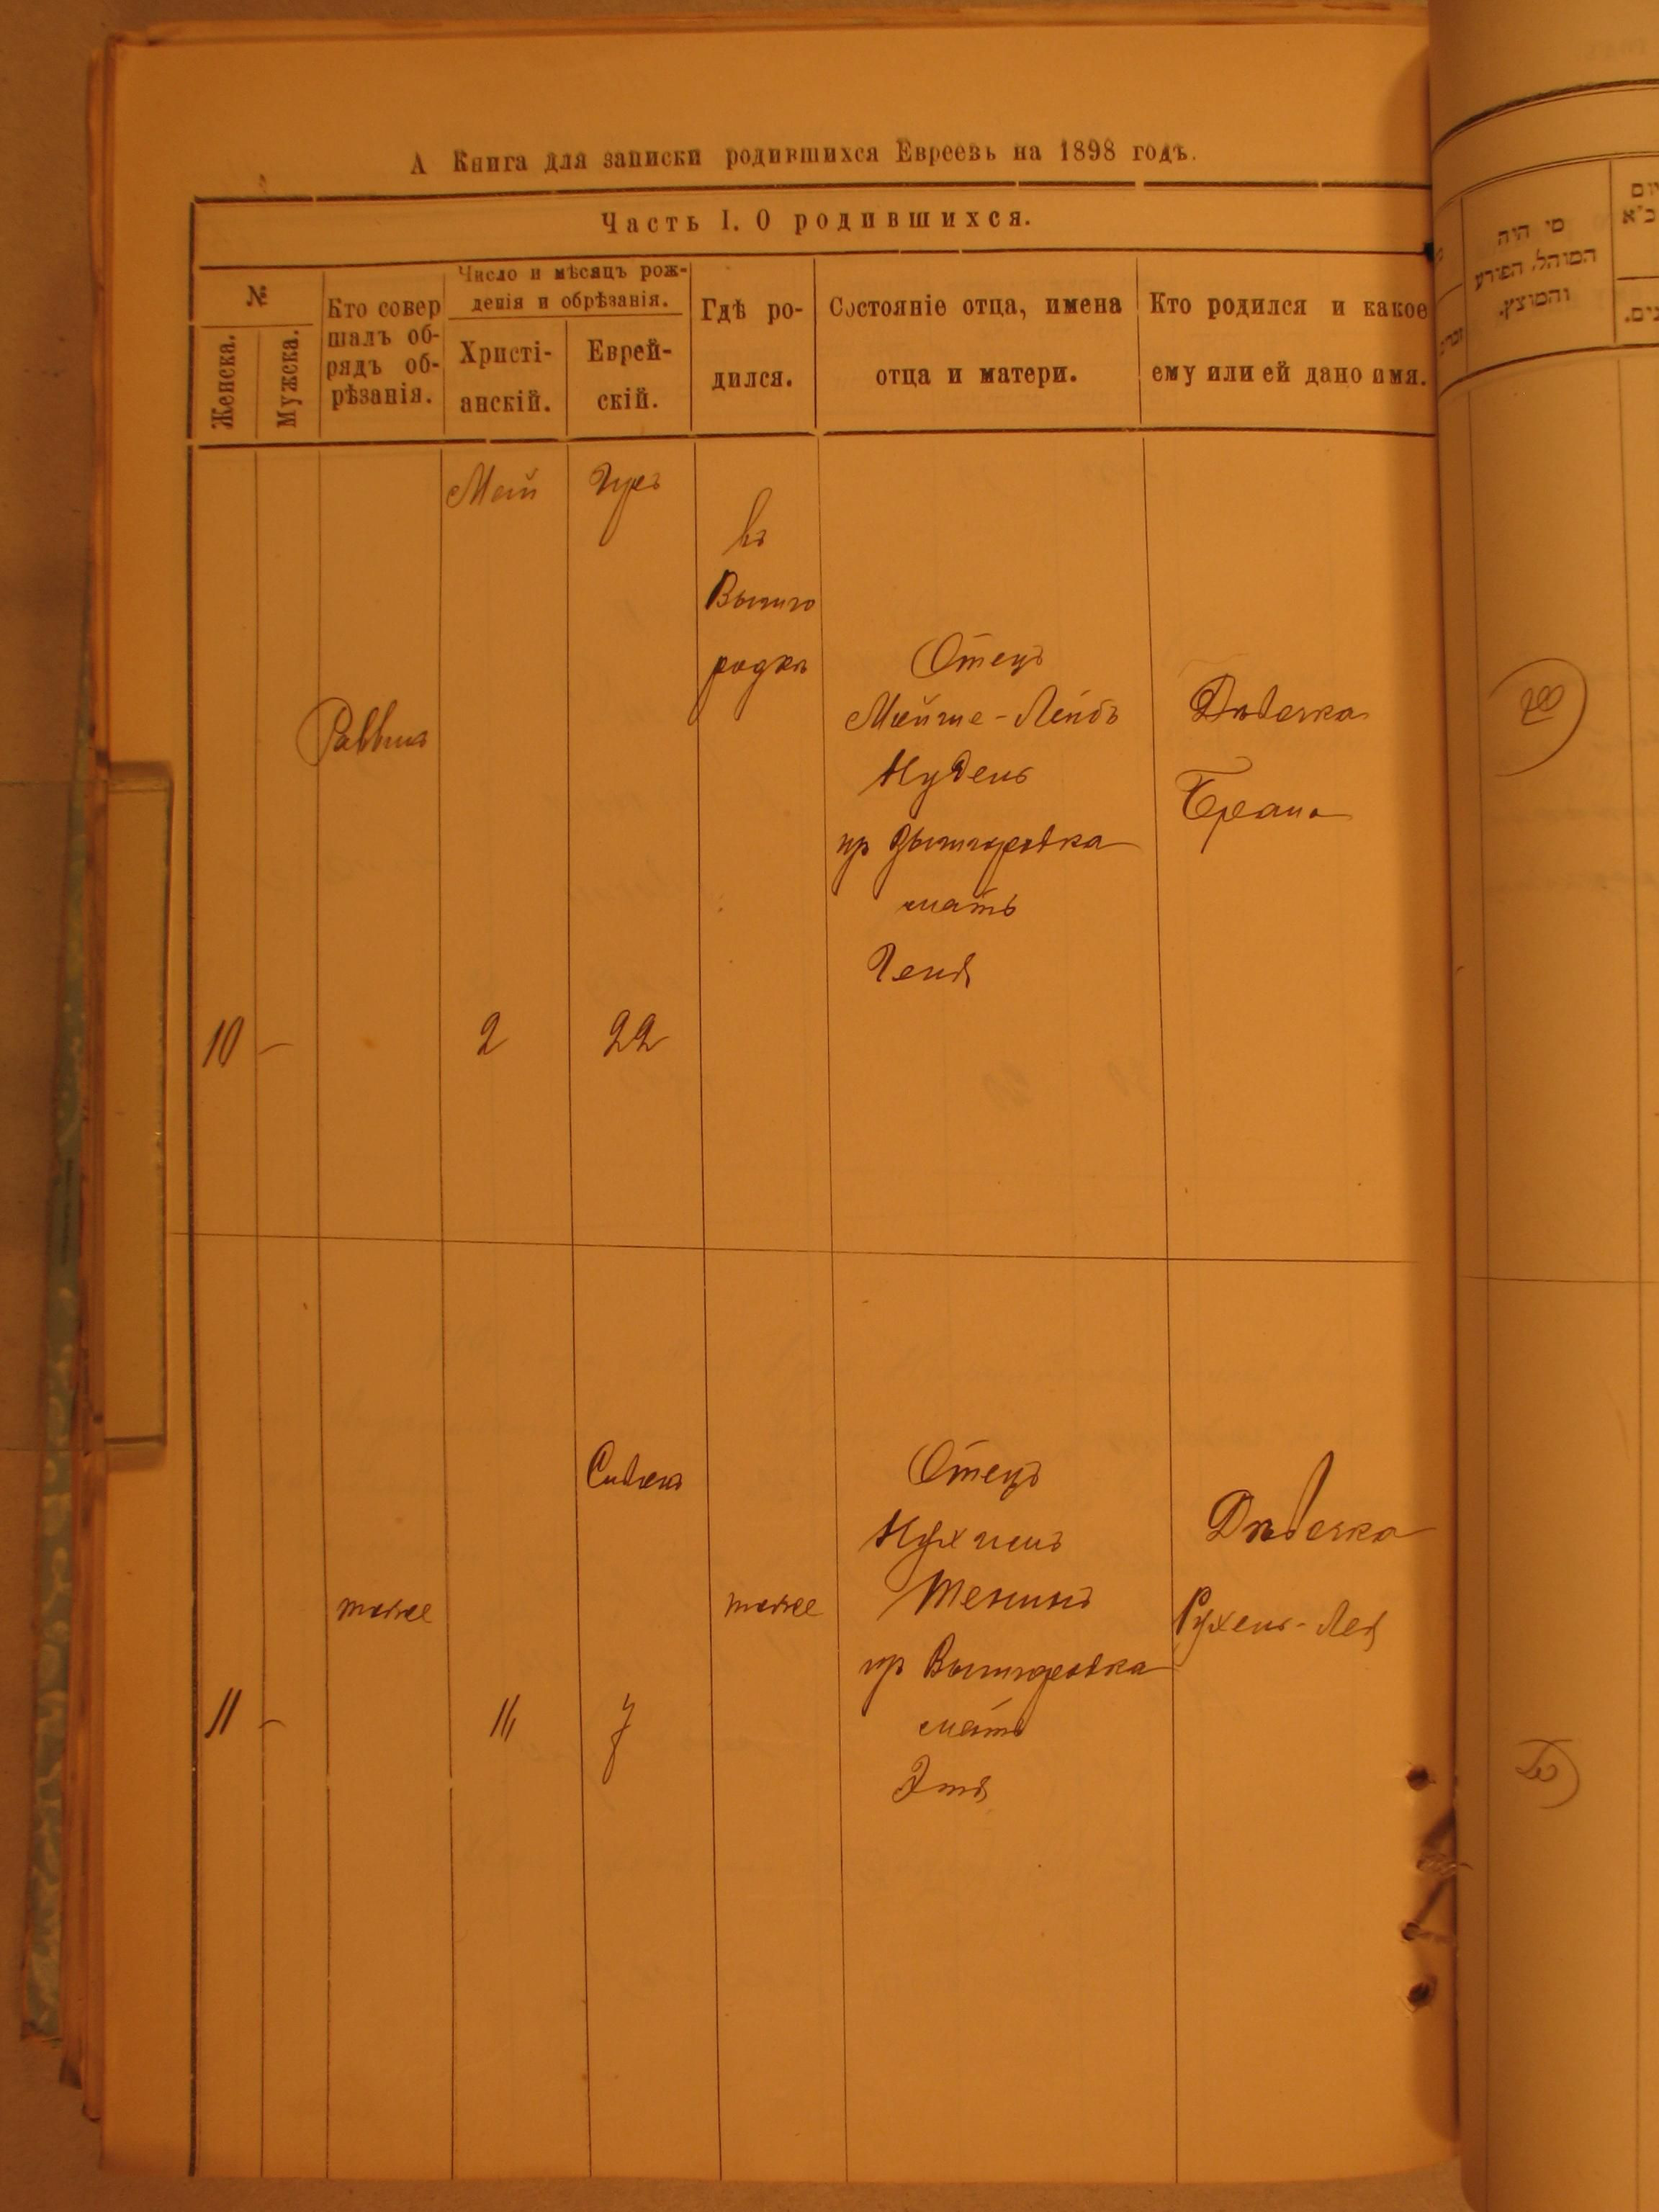 А Книга для записки родившихся Евреевъ на 1898 годъ.
Часть I. О родившихся.
№
Женска.
Мужска.
Кто совер
шалъ об-
рядъ об-
рѣзанія.
Число и мѣсяцъ рож-
денія и обрѣзанія.
Христі-
анскій.
Еврей-
скій.
Гдѣ ро-
дился.
Состояніе отца, имена
отца и матери.
Кто родился и какое
ему или ей дано имя.
10
-
Раввинъ
Май
2
22
въ
Вышго
родкѣ
Отецъ
Мойше-Лейбъ
Нудель
мать
Геня
Дѣвочка
11
-
тоже
Сивонъ
7
тоже
Отецъ
пр Вышгородка
мать
Этя
Дѣвочка
Рухель-Лея
מי היה
המוהל, הפורע
והמוצץ.